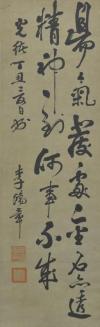 陽氣發處金石亦透
精神一到何事不成
光緒丁丑
李鴻章